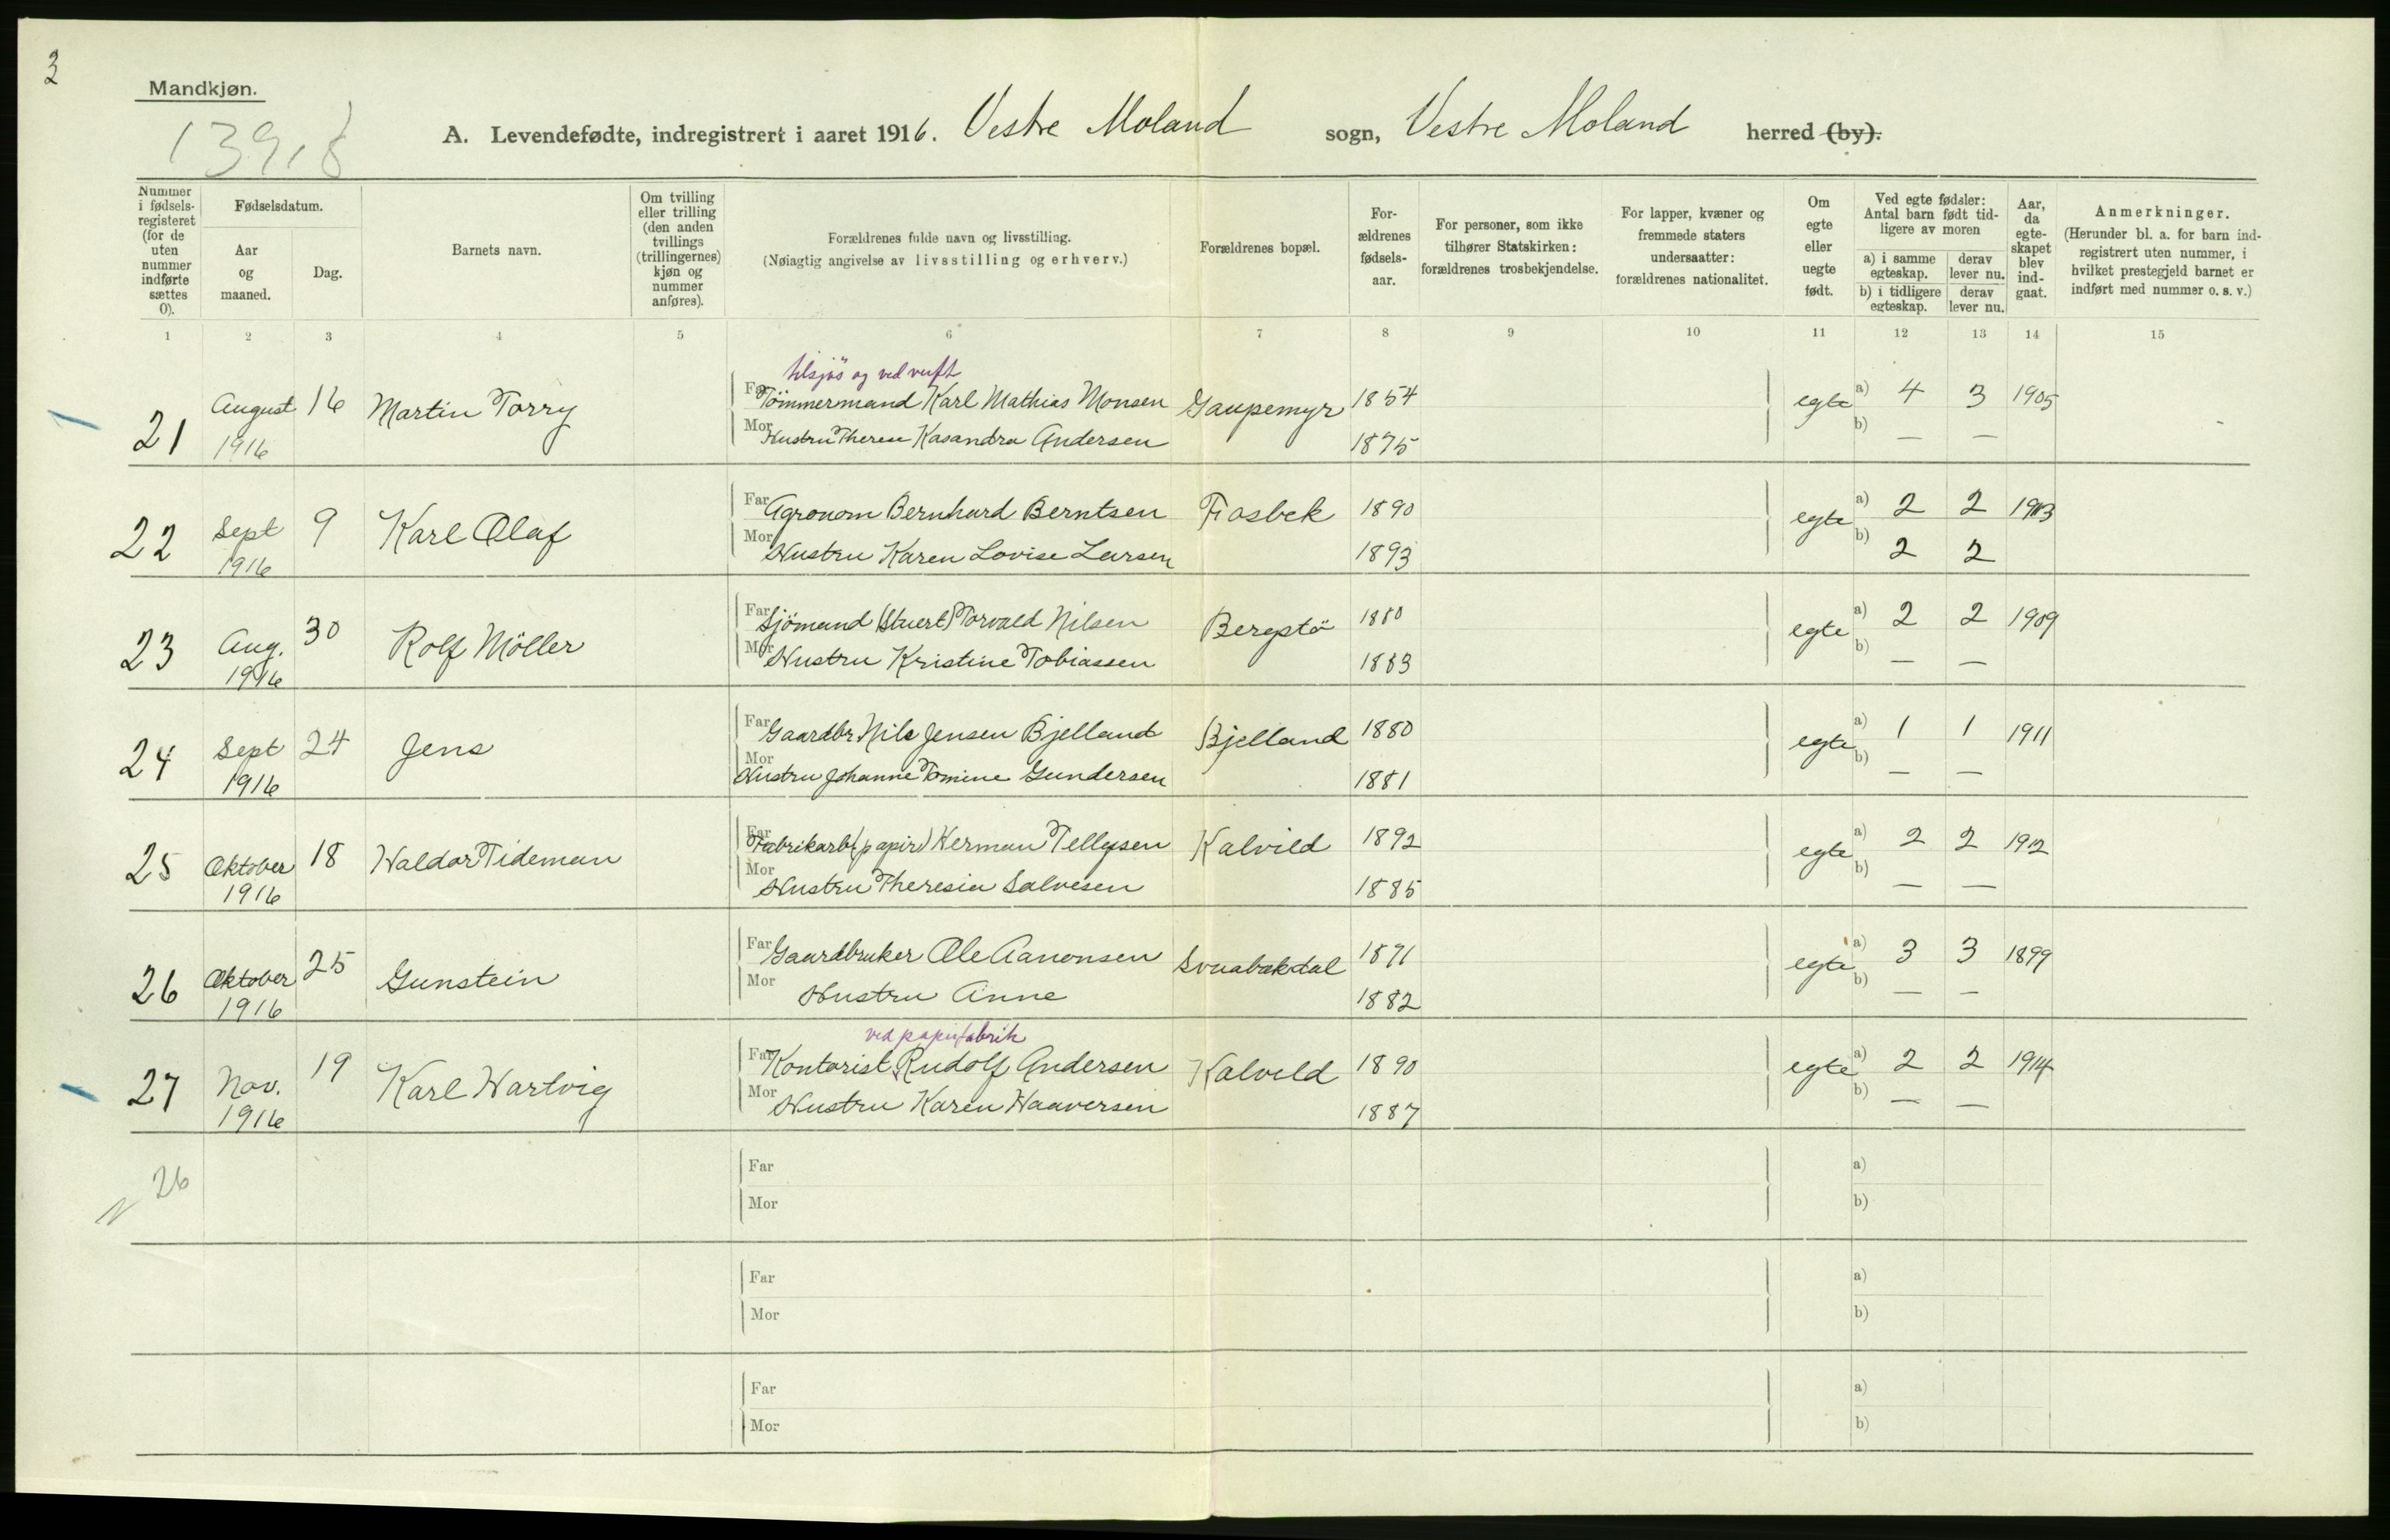 3
Mandkjøn.
1391,8
A. Levendefødte, indregistrert i aaret 1916. Vestre Moland sogn, Vestre Moland herred (by).
Nummer i fødsels-registeret (for de uten nummer indførte sættes 0).
Fødselsdatum.
Aar og maaned.
Dag.
Barnets navn.
Om tvilling eller trilling (den anden tvillings (trillingernes) kjøn og nummer anføres).
Forældrenes fulde navn og livsstilling.
(Nøiagtig angivelse av livsstilling og erhverv.)
Forældrenes bopæl.
For-ældrenes fødsels-aar.
For personer, som ikke tilhører Statskirken: forældrenes trosbekjendelse.
For lapper, kvæner og fremmede staters undersaatter: forældrenes nationalitet.
Om egte eller uegte født.
Ved egte fødsler: Antal barn født tid-ligere av moren
a) i samme egteskap.
derav lever nu.
b) i tidligere egteskap.
derav lever nu.
Aar, da egte-skapet blev ind-gaat.
Anmerkninger.
(Herunder bl. a. for barn ind-registrert uten nummer, i hvilket prestegjeld barnet er indført med nummer o. s. v.)
1 2 3 4 5 6 7 8 9 10 11 12 13 14 15
tilsjøs og ved verft
21 August 1916 16 Martin Torry Far Tömmermand Karl Mathias Monsen Gaupemyr 1854 egte a) 4 3 1905
Mor Hustru Therese Kasandra Andersen 1875 b) — —
22 Sept 1916 9 Karl Olaf Far Agronom Bernhard Berntsen Fosbek 1890 egte a) 2 2 1913
Mor Hustru Karen Lovise Larsen 1893 b) 2 2
23 Aug. 1916 30 Rolf Möller Far Sjömand (Stuert) Torvald Nilsen Bergstö 1880 egte a) 2 2 1909
Mor Hustru Kristine Tobiassen 1883 b) — —
24 Sept 1916 24 Jens Far Gaardbr Nils Jensen Bjelland Bjelland 1880 egte a) 1 1 1911
Mor Hustru Johanne Tomine Gundersen 1881 b) — —
25 Oktober 1916 18 Haldor Tideman Far Fabrikarb (papir) Herman Tellefsen Kalvild 1892 egte a) 2 2 1912
Mor Hustru Theresia Salvesen 1885 b) — —
26 Oktober 1916 25 Gunstein Far Gaardbruker Ole Aanonsen 1871 egte a) 3 3 1899
Mor Hustru Anne 1882 b) — —
ved papirfabrik
27 Nov. 1916 19 Karl Hartvig Far Kontorist Rudolf Andersen Kalvild 1890 egte a) 2 2 1914
Mor Hustru Karen Haaversen 1887 b) — —
26
Far a)
Mor b)
Far a)
Mor b)
Far a)
Mor b)